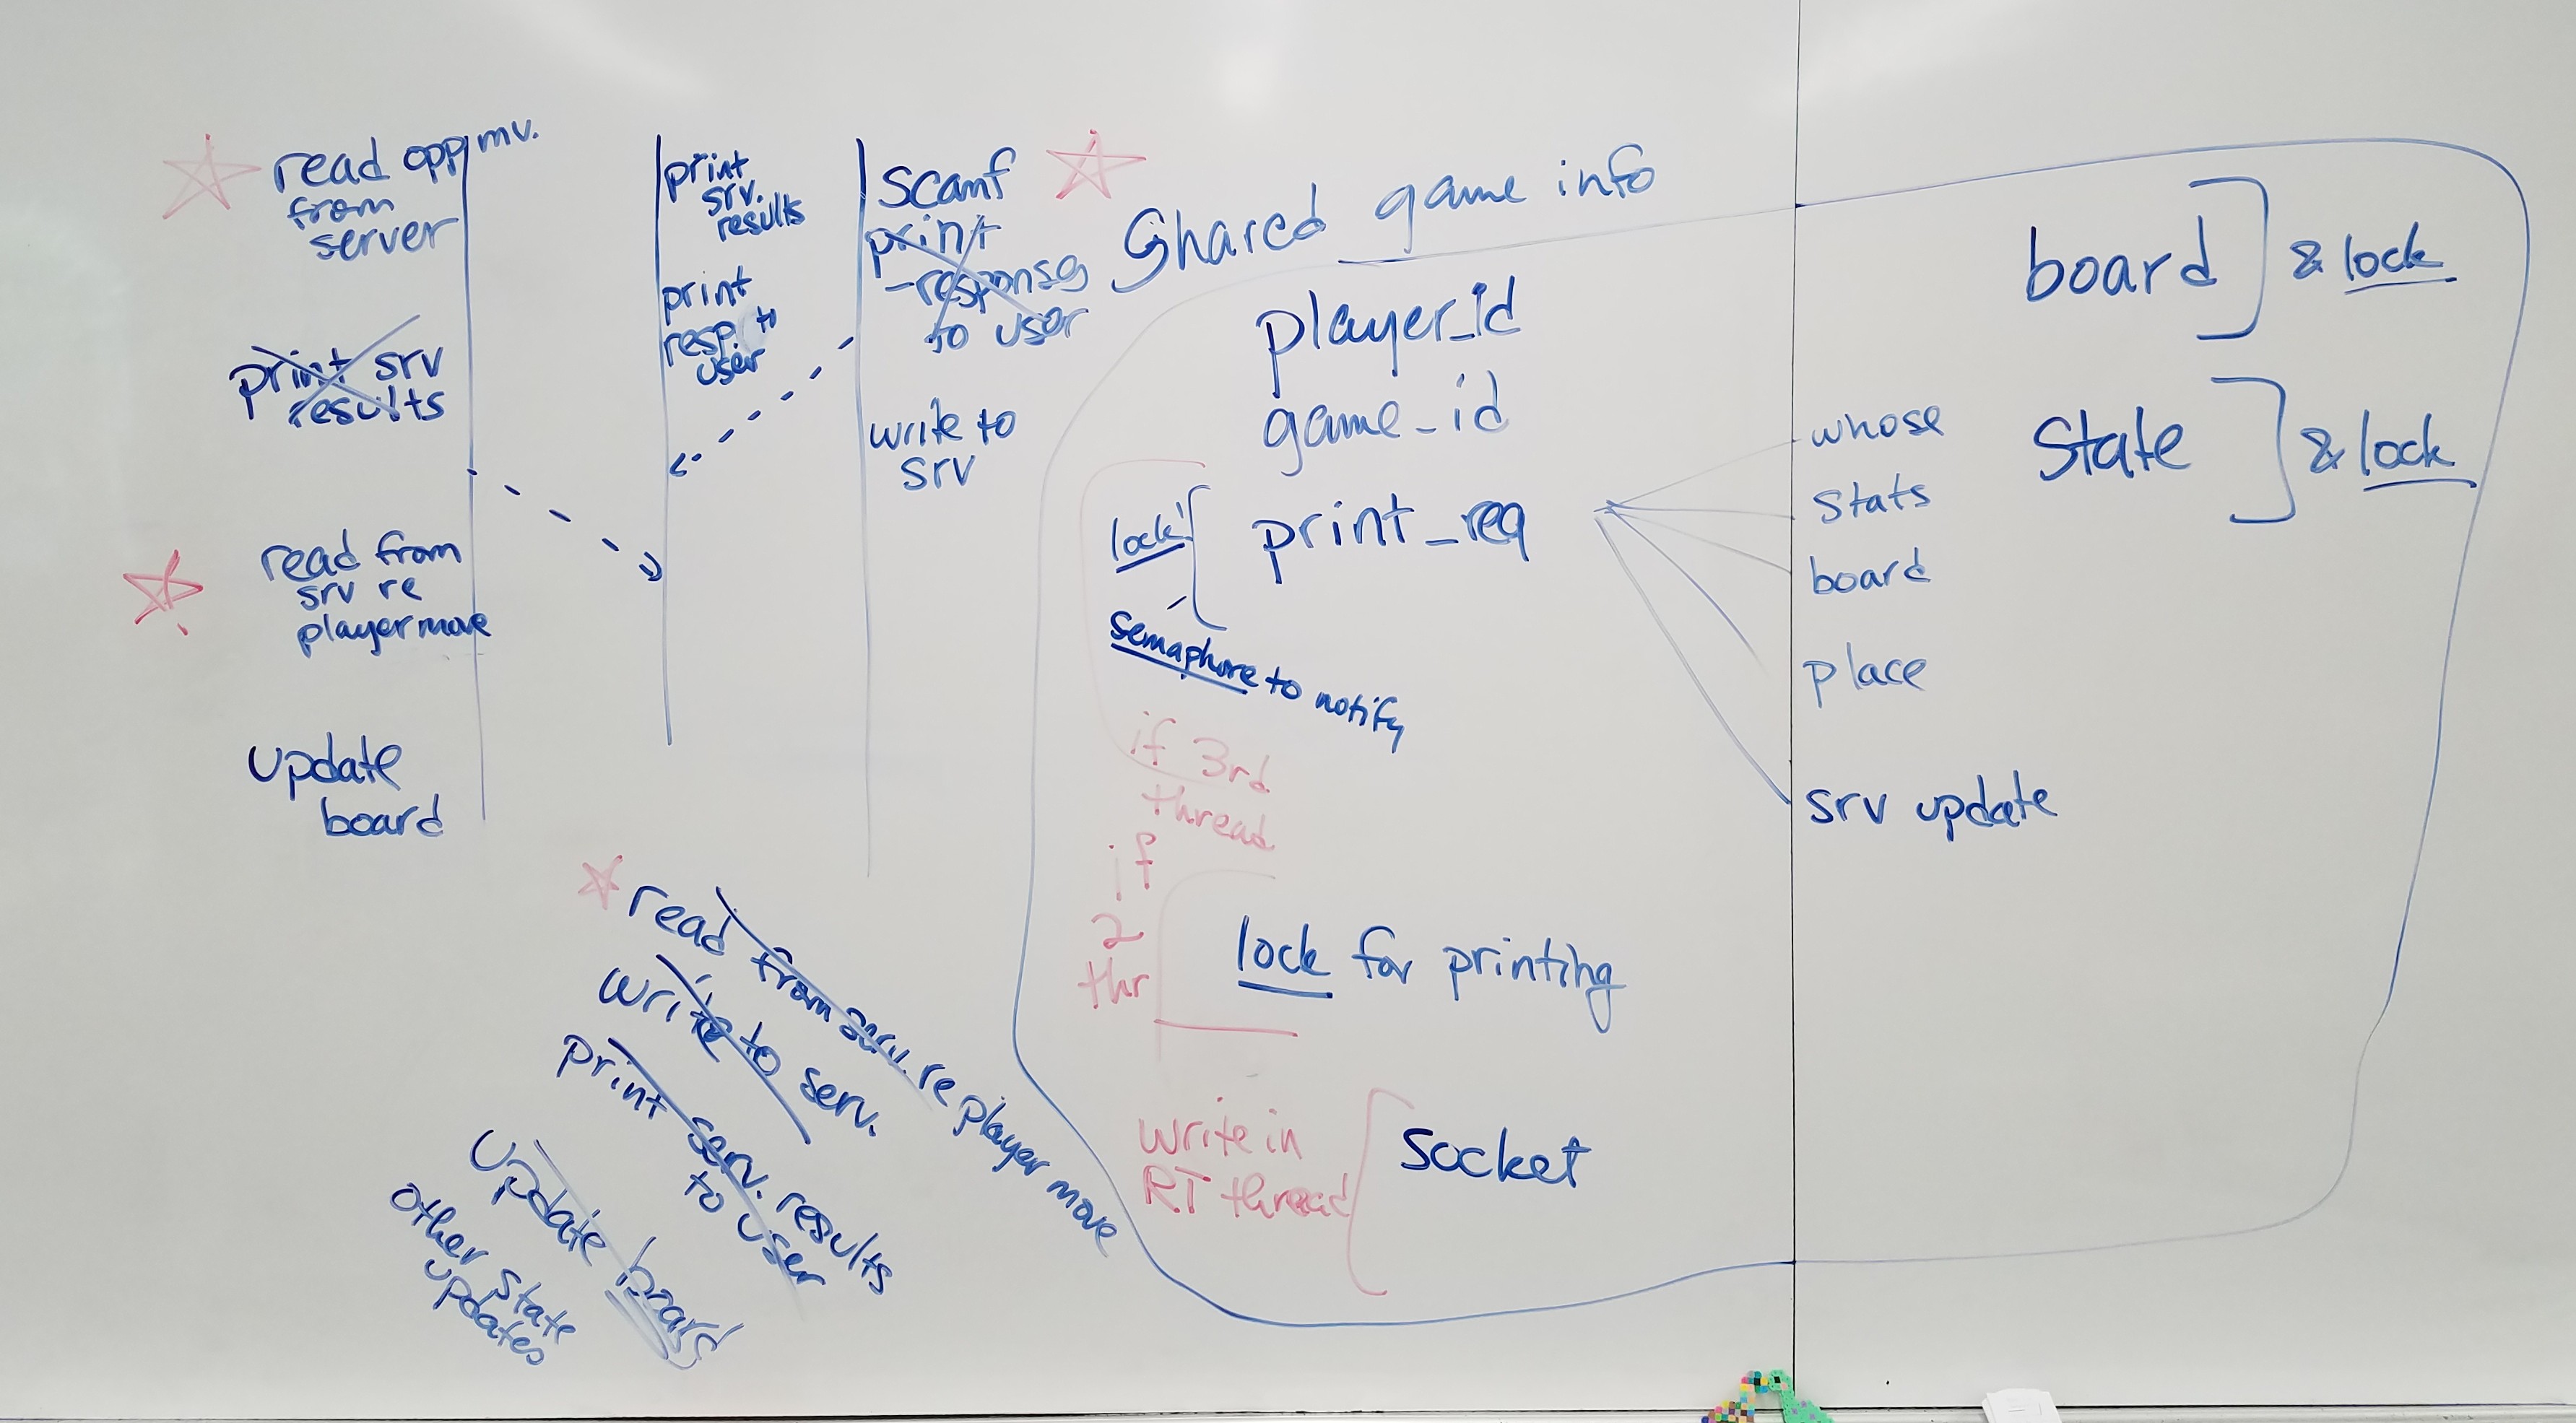 read opp mv.
from
server
print srv
results
read from
srv re
player move
update
board
print
srv.
results
print
resp. to
user
scanf
print
-responses
to user
write to
srv
read from serv. re player move
write to serv.
print serv. results
to user
Update board
other state
updates
Shared game info
player_id
game_id
lock
print_req
semaphore to notify
if 3rd
thread
if
2
thr
lock for printing
write in
RT thread
socket
whose
stats
board
place
srv update
board
& lock
State
& lock